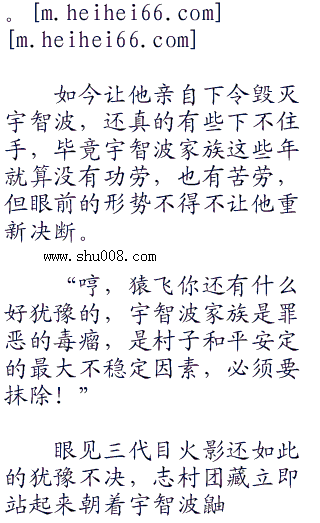 。[m.heihei66.com]
[m.heihei66.com]
如今让他亲自下令毁灭
宇智波，还真的有些下不住
手，毕竟宇智波家族这些年
就算没有功劳，也有苦劳，
但眼前的形势不得不让他重
新决断。
www.shu008.com
“哼，猿飞你还有什么
好犹豫的，宇智波家族是罪
恶的毒瘤，是村子和平安定
的最大不稳定因素，必须要
抹除！”
眼见三代目火影还如此
的犹豫不决，志村团藏立即
站起来朝着宇智波鼬